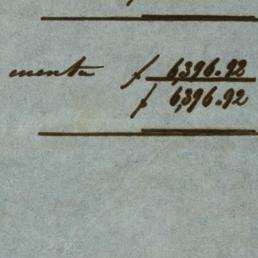 menta ƒ 6,396.92
ƒ 6,396.92